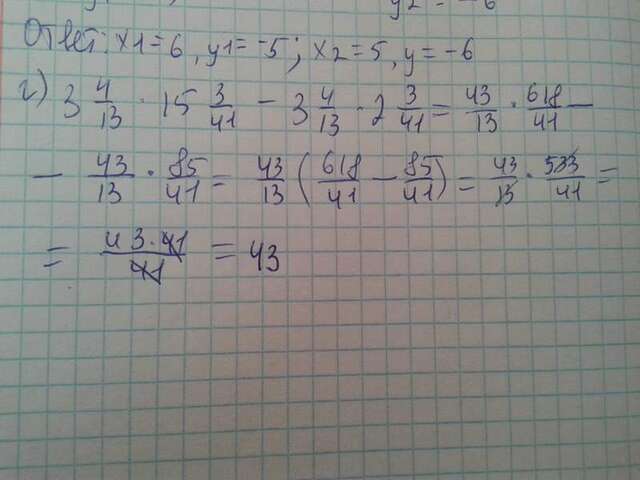 y2 = -6
Ответ: x1=6, y1=-5; x2=5, y=-6
г) 3 4/13 · 15 3/41 - 3 4/13 · 2 3/41 = 43/13 · 618/41 -
- 43/13 · 85/41 = 43/13 (618/41 - 85/41) = 43/13 · 533/41 =
= 43·41/41 = 43